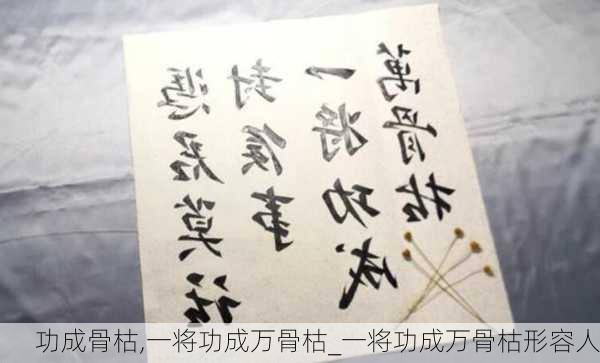 憑君莫话
封侯事
一将功成
萬骨枯
功成骨枯,一将功成万骨枯_一将功成万骨枯形容人